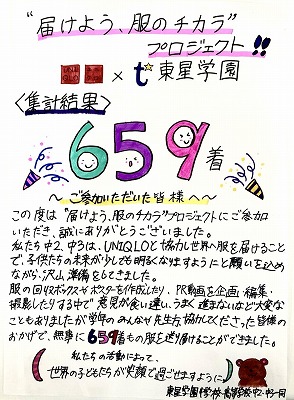 “届けよう、服のチカラ”
プロジェクト!!
UNI QLO × t 東星学園
<集計結果>
659着
～ご参加いただいた皆様へ～
この度は“届けよう、服のチカラ”プロジェクトにご参加
いただき、誠にありがとうございました。
私たち中2、中3は、UNIQLOと協力し世界へ服を届けることで、
子供たちの未来が少しでも明るくなりますようにと願いを込め
ながら、沢山準備をしてきました。
服の回収ボックスやポスターを作成したり、PR動画を企画・編集・
撮影したりする中で意見が食い違い、うまく進まないほど大変な
こともありましたが学年のみんなや先生方、協力してくださった皆様の
おかげで、無事に659着もの服を送り届けることができました。
私たちの活動によって、
世界の子どもたちが笑顔で過ごせますように
東星学園中学校・高等学校 中2・中3一同